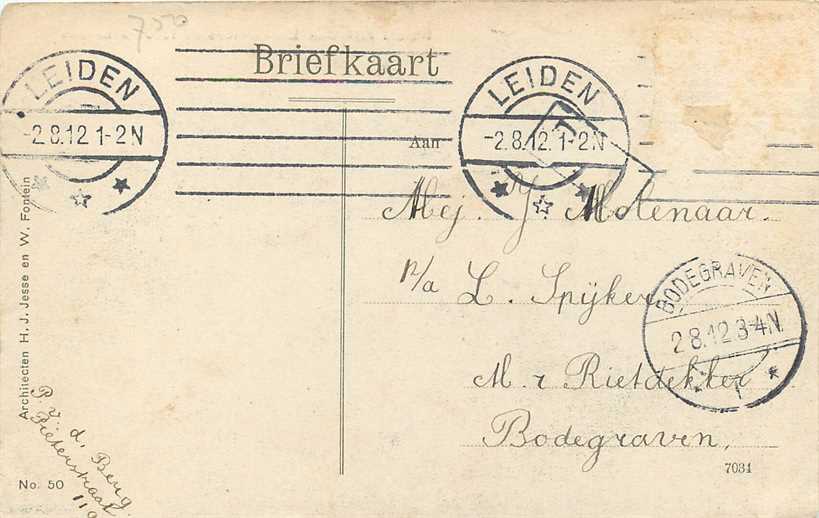 750
Briefkaart
LEIDEN
-2.8.12 1-2N
LEIDEN
-2.8.12. 1-2N
T
Aan
Mej. J. Molenaar.
p/a L. Spijker
M. r Rietdekker
Bodegraven,
BODEGRAVEN
2 8.12 3-4N.
1
Architecten H. J. Jesse en W. Fontein
P. v. d. Berg.
Pieterstraat
No. 50
7031